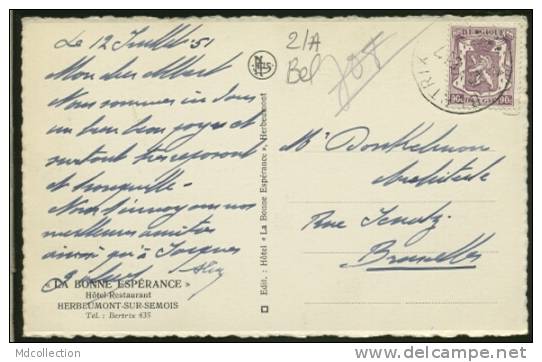 Le 12 Juillet 51
Mon cher Albert
Nous sommes ici dans
un bien bon foyer et
surtout très reposant
et tranquille -
Nous t'envoyons nos
meilleures amitiés
ainsi qu'à Jacques
« LA BONNE ESPÉRANCE »
Hôtel-Restaurant
HERBEUMONT-SUR-SEMOIS
Tél. : Bertrix 435
Edit. : Hôtel « La Bonne Espérance », Herbeumont
2/A
Bel
BELGIQUE
90c BELGIE 90c
TRIX
Mr
Architecte
Rue
Bruxelles
Mdcollection
http://www.delcampe.net